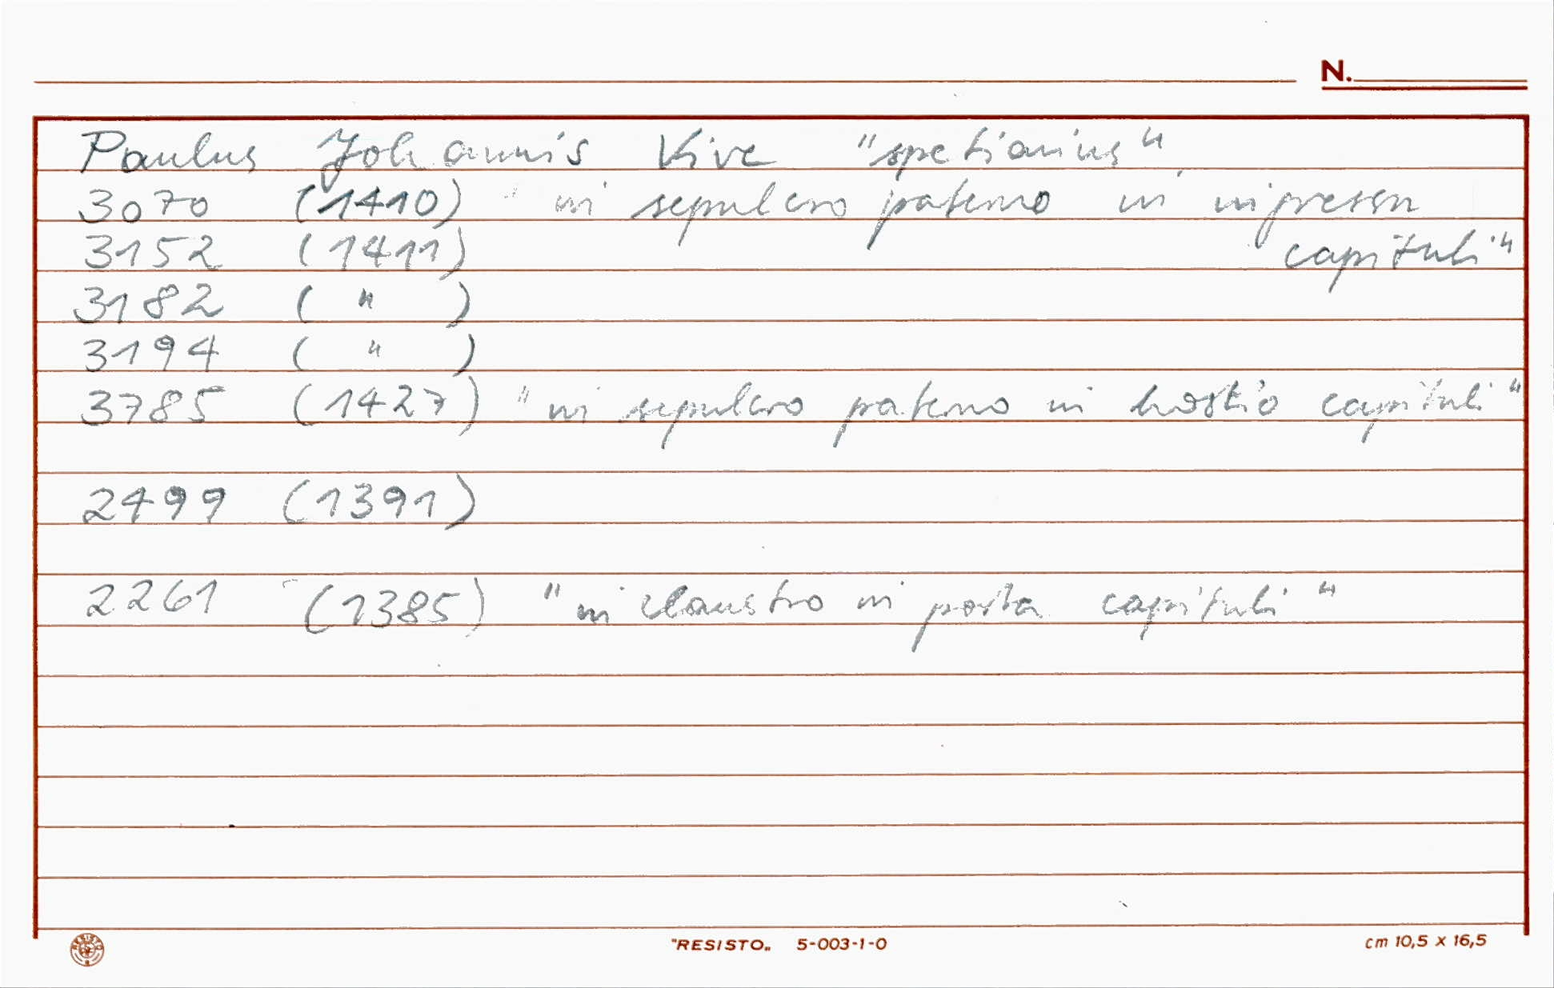 N.
Paulus Johannis Vive "spetiarius"
3070 (1410) " in sepulcro paterno in ingressu
3152 (1411) capituli"
3182 ( " )
3194 ( " )
3785 (1427) "in sepulcro paterno in hostio capituli"
2499 (1391)
2261 (1385) "in claustro in porta capituli"
RESISTO
"RESISTO„ 5-003-1-0 cm 10,5 x 16,5